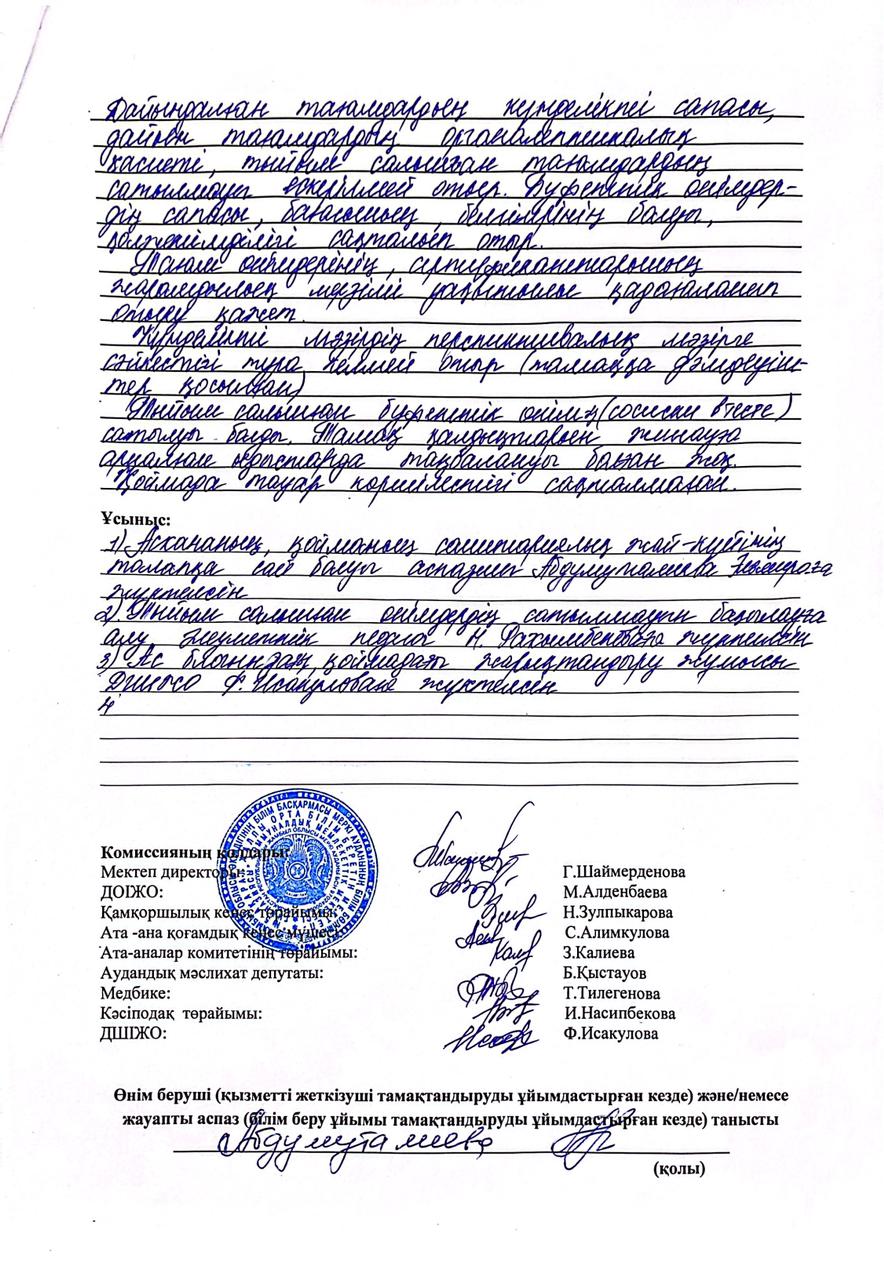 Дайындалған тағамдардың күнделікті сапасы,
дайын тағамдардың органалептикалық
қасиеті, тыйым салынған тағамдардың
сатылмауы ескерілмей отыр. Буфеттік өнімдер-
дің сапасы, бағасының, бөлігілерінің болуы,
қолжетімділігі сақталып отыр.
Тағам өнімдерінің, сертификаттарының
жарамдылық мерзімі уақытылы қадағаланып
отыру қажет.
Күнделікті мәзірдің перспективалық мәзірге
сәйкестігі тура келмей отыр (тамаққа дәмдеуіш-
тер қосылған)
Тыйым салынған буфеттік өнім (сосиски в тесте)
сатылуы болды. Тамақ қалдықтарын жинауға
арналған ыдыстарда таңбалануы болған жоқ.
Қоймада тауар көршілестігі сақталмаған.
Ұсыныс:
1) Асхананың, қойманың санитариялық жай-күйінің
талапқа сай болуы аспазшы Абдумуталиева
жүктелсін
2). Тыйым салынған өнімдердің сатылмауын бақылауға
алу, әлеуметтік педагог Н. Рахымбековаға жүктелсін
3) Ас блогындағы, қоймадағы жарықтандыру жұмысы
ДШІЖО Ф. Исакуловаға жүктелсін
4
Комиссияның қолдары:
Мектеп директоры: Г.Шаймерденова
ДОІЖО: М.Алденбаева
Қамқоршылық кеңес төрайымы: Н.Зулпыкарова
Ата -ана қоғамдық кеңес мүшесі: С.Алимкулова
Ата-аналар комитетінің төрайымы: З.Калиева
Аудандық мәслихат депутаты: Б.Қыстауов
Медбике: Т.Тилегенова
Кәсіподақ төрайымы: И.Насипбекова
ДШІЖО: Ф.Исакулова
Өнім беруші (қызметті жеткізуші тамақтандыруды ұйымдастырған кезде) және/немесе
жауапты аспаз (білім беру ұйымы тамақтандыруды ұйымдастырған кезде) танысты
Абдумуталиева
(қолы)